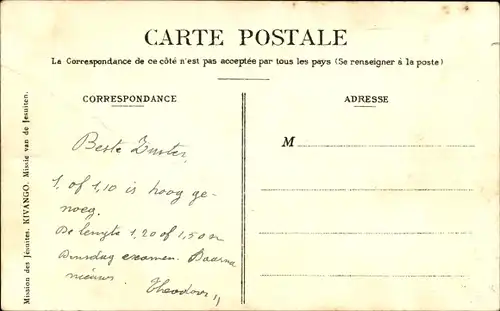 CARTE POSTALE
La Correspondance de ce côté n'est pas acceptée par tous les pays (Se renseigner à la poste)
CORRESPONDANCE
Beste Zuster,
1, of 1,10 is hoog ge-
noeg.
De lengte 1,20 of 1,50 m
Dinsdag examen. Daarna
nieuws.
Theodoor
ADRESSE
M
Mission des Jésuites. KIVANGO. Missie van de Jesuiten.